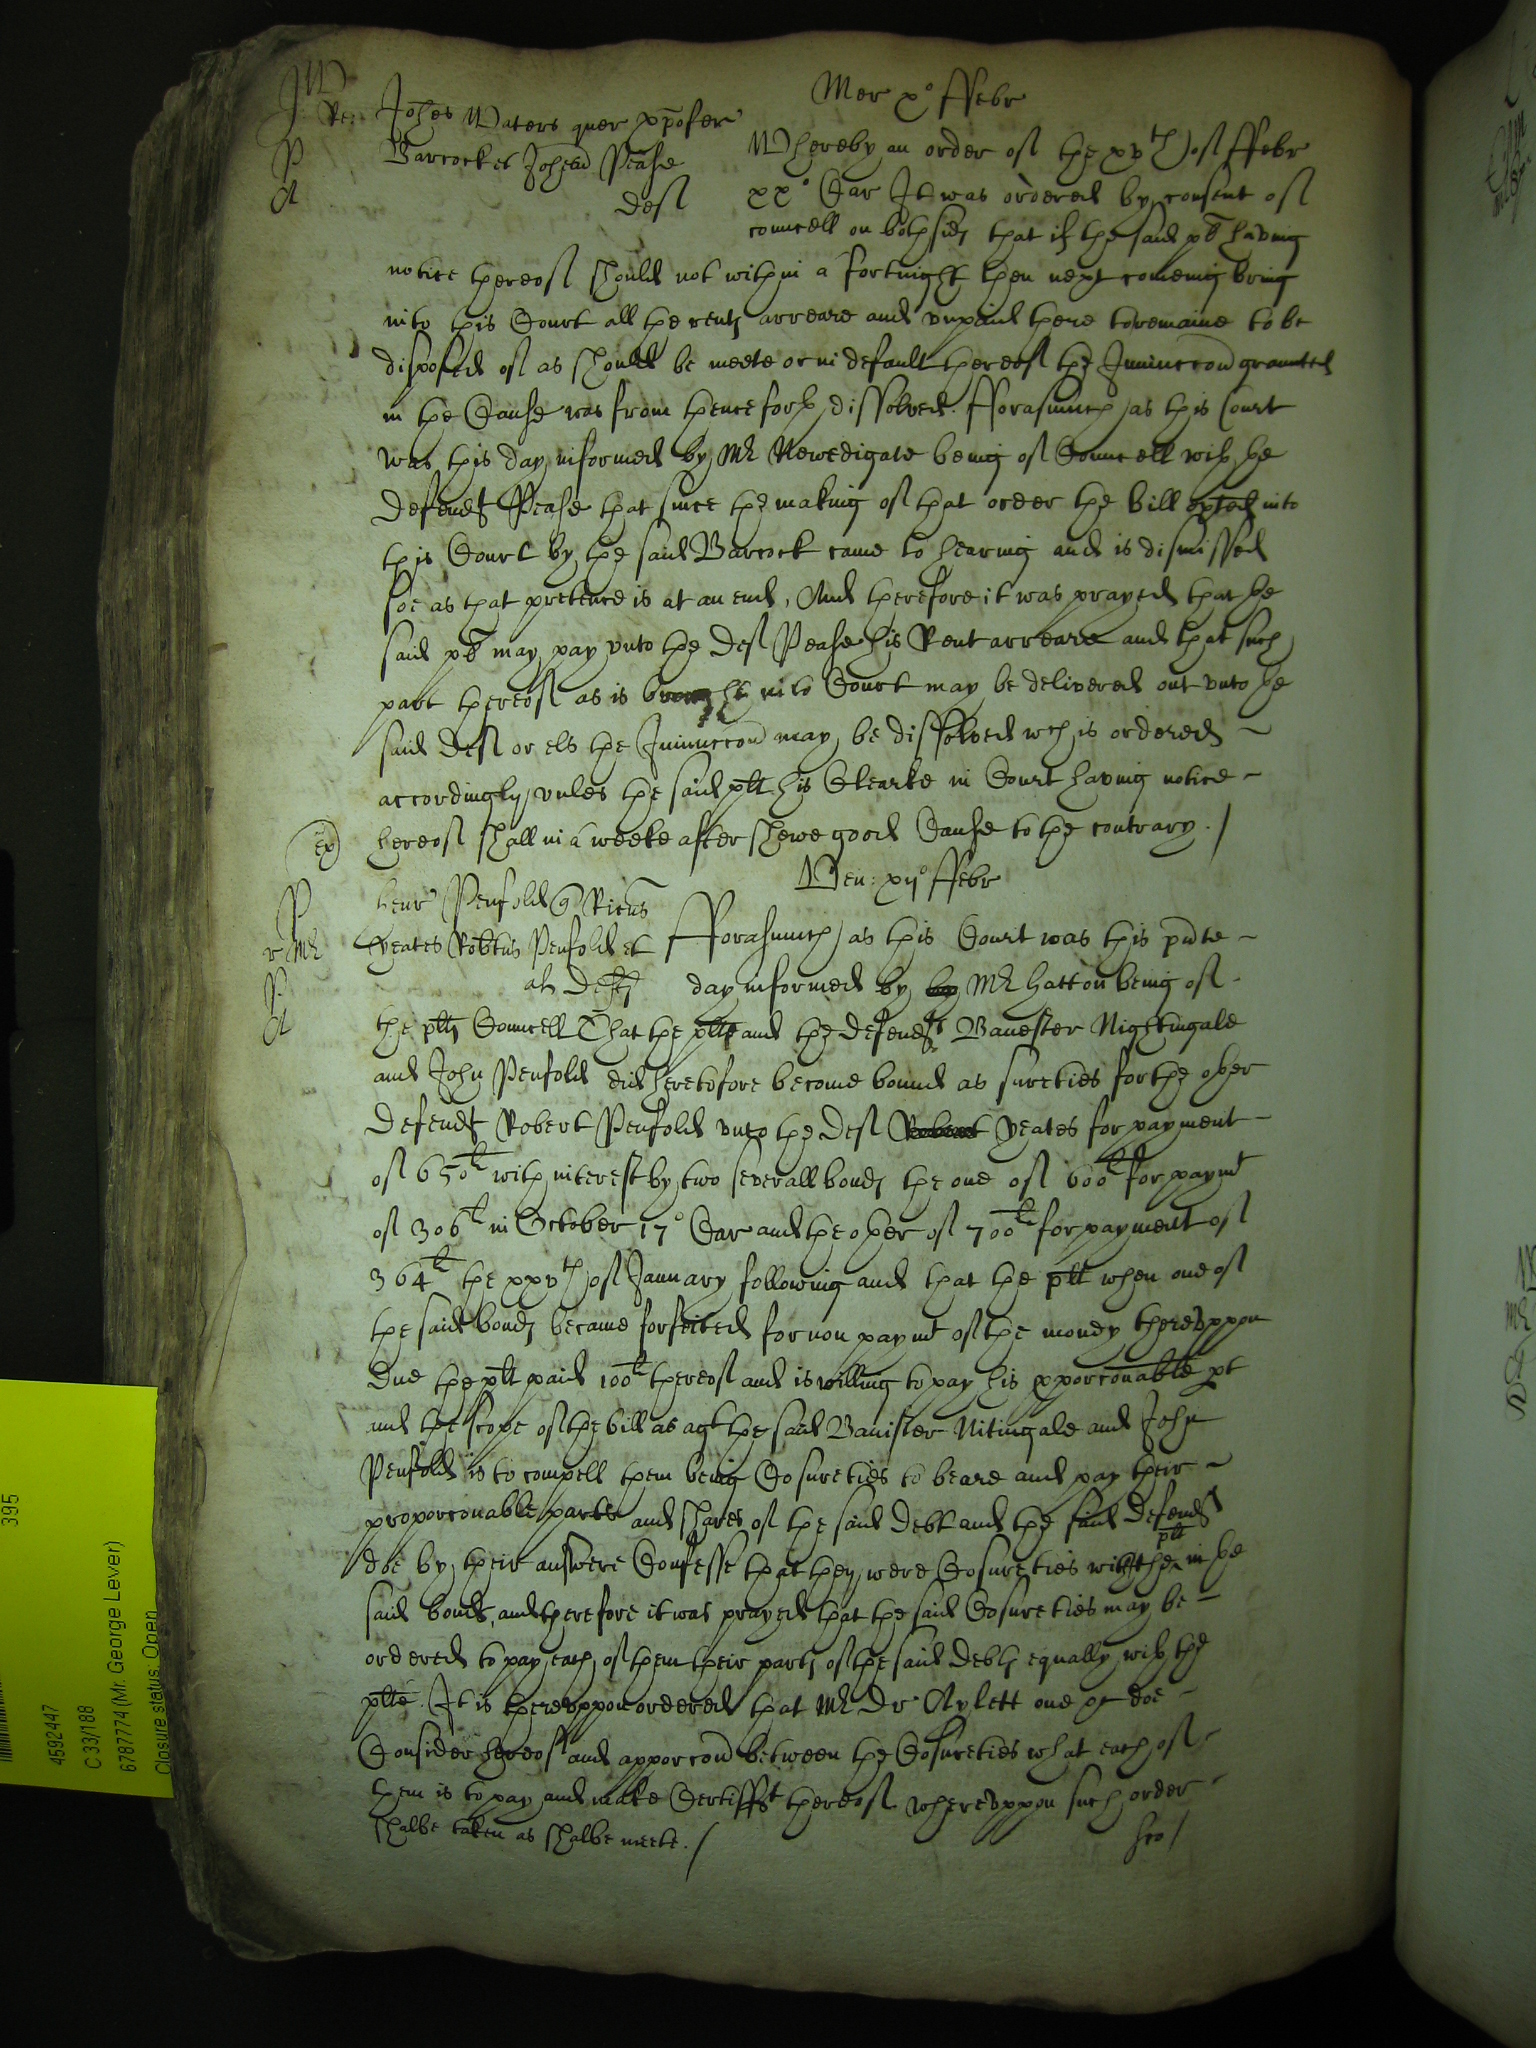 Mer x° ffebr
JW
Re:
P
A
Johes Waters quer xpofer
Barcocke et Johem Pease
def
Whereby an order of the xvth of ffebr
xx° Car It was ordered by consent of
councell on both sides that if the said plt having
notice thereof should not within a fortnight then next comeing bring
into this Court all the rents arreare and vnpaid there to remaine to be
disposed of as should be meete or in default thereof the Iniunccon graunted
in the Cause was from henceforth dissolved. fforasmuch as this Court
was this day informed by Mr Newedigate being of Councell with the
defendt Pease that since the making of that order the bill exted into
this Court by the said Barcock came to hearing and is dismissed
soe as that pretence is at an end, And therefore it was prayed that the
said plt may pay vnto the Def Pease his Rent arreare and that such
part thereof as is brought into Court may be delivered out vnto the
said Def or els the Iniunccon may be dissolved wch is ordered
accordingly vnles the said plt his Clearke in Court having notice
hereof shall in a weeke after shewe good Cause to the contrary ./
Ex
Ven: xij° ffebr
P
r Mr
P
A
henr Penfold q Ricus
Yeates Robtus Penfold et
al Defts
fforasmuch as this Court was this pnte
day informed by by Mr hatton being of
the plts Councell That the plte and the defendts Banester Nightingale
and John Penfold did heretofore become bound as sureties for the other
Defendt Robert Penfold vnto the Def Robert Yeates for payment
of 650l with interest by two severall bonds the one of 600l for paymt
of 306l in October 17° Car and the other of 700l for payment of
364l the xxvth of January following and that the plt when one of
the said bonds became forfeited for non paymt of the money therevppon
due the plt paid 100l thereof and is willing to pay his pporconable pt
and the scope of the bill as agt the said Banister Nitingale and John
Penfold is to compell them being Cosureties to beare and pay their
proporconable parts and shares of the said debt and the said defendts
doe by their answere Confesse that they were Cosureties with the plt in the
said bonds, and therefore it was prayed that the said Cosureties may be
ordered to pay each of them their parts of the said debts equally with the
plte. It is therevppon ordered that Mr Dr Aylett one &c doe
Consider hereof and apporcon between the Cosureties what each of
them is to pay and make Certifft thereof wherevppon such order
shalbe taken as shalbe meete ./
395
4592447
C 33/188
6787774 (Mr. George Lever)
Closure status: Open